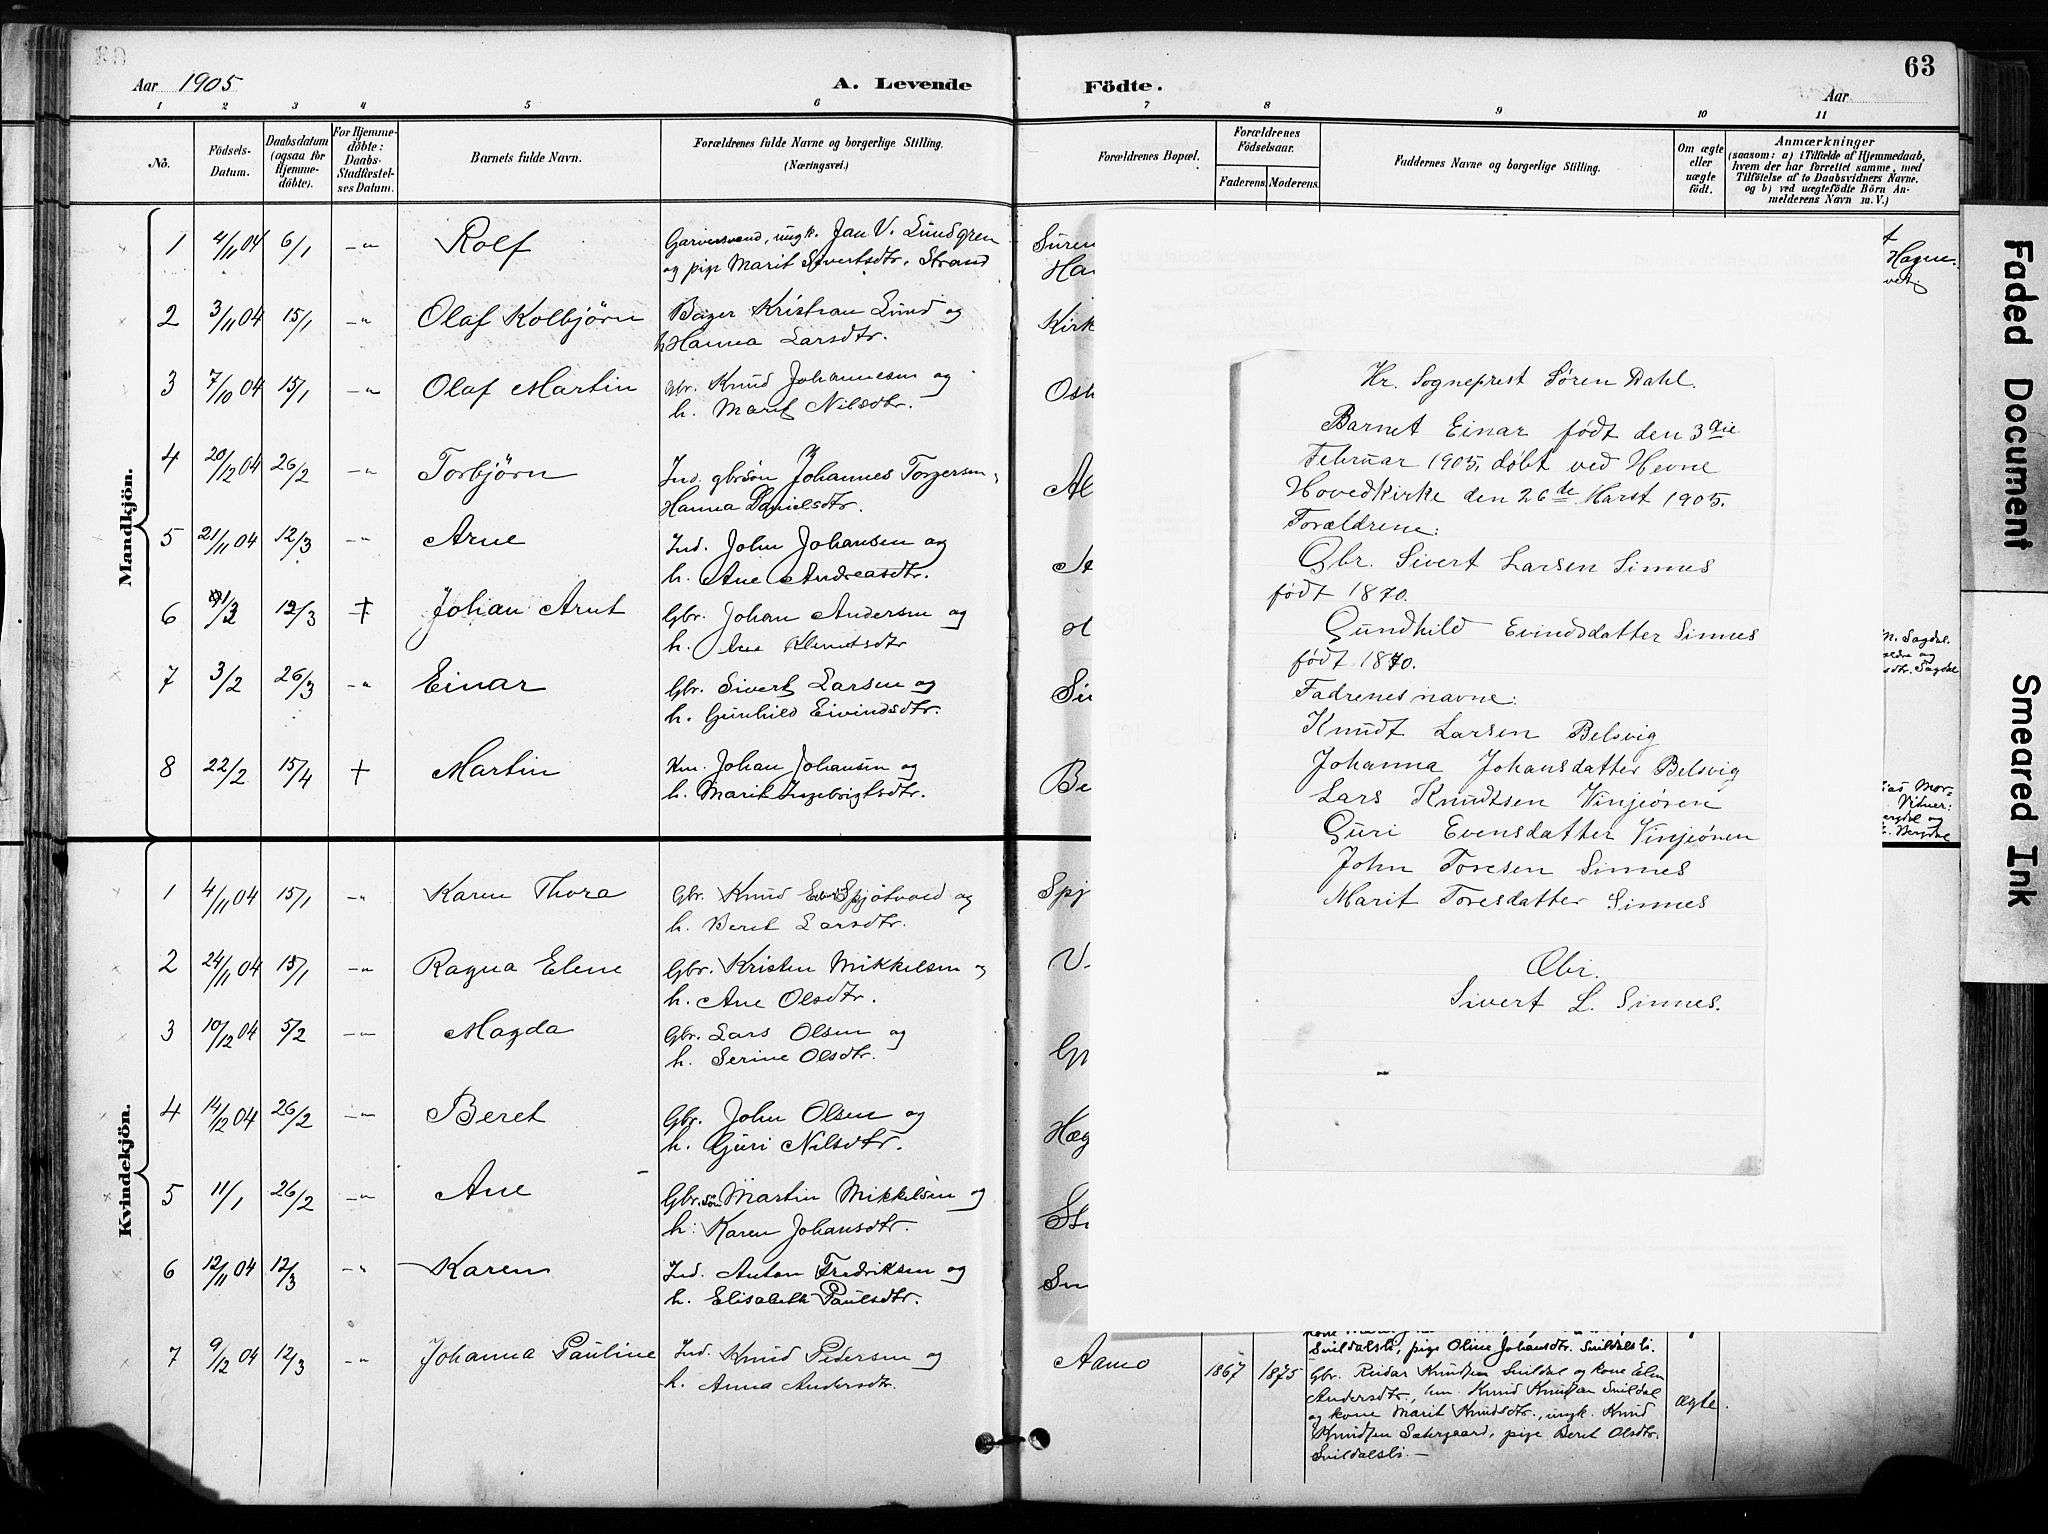 Aar 1905
A. Levende
1 2 3 4 5 6
No.
Födsels-
Datum.
Daabsdatum
(ogsaa for
Hjemme-
döbte).
For Hjemme-
döbte:
Daabs-
Stadfæstel-
ses Datum.
Barnets fulde Navn.
Forældrenes fulde Navne og borgerlige Stilling.
(Næringsvei.)
Mandkjön.
1 4/11 04 6/1 -„- Rolf Garversvend, ungk. Jan V. Lundgren
og pige Marit Sivertsdtr. Strand
2 3/11 04 15/1 -„- Olaf Kolbjörn Bager Kristian Lund og
h. Hanna Larsdtr.
3 7/10 04 15/1 -„- Olaf Martin Gbr. Knud Johannesen og
h. Marit Nilsdtr.
4 20/12 04 26/2 -„- Torbjörn Ind. gbrsön Johannes Torgersen
Hanna Danielsdtr.
5 21/11 04 12/3 -„- Arne Ind. John Johansen og
h. Ane Andreasdtr.
6 12/3 † Johan Arnt Gbr. Johan Andersen og
h. Ane Klemetsdtr
7 3/2 26/3 -„- Einar Gbr. Sivert Larsen og
h. Gunhild Eivindsdtr.
8 22/2 15/4 † Martin Km. Johan Johansen og
h. Marit Ingebrigtsdtr.
Kvindekjön.
1 4/11 04 15/1 -„- Karen Thora Gbr. Knud Spjötvold og
h. Beret Larsdtr.
2 24/11 04 15/1 -„- Ragna Elene Gbr. Kristen Mikkelsen og
h. Ane Olsdtr.
3 10/12 04 5/2 -„- Magda Gbr. Lars Olsen og
h. Serine Olsdtr.
4 14/12 04 26/2 -„- Beret Gbr. John Olsen og
h. Guri Nilsdtr.
5 11/1 26/2 -„- Ane Gbr.sön Martin Mikkelsen og
h. Karen Johansdtr.
6 12/11 04 12/3 -„- Karen Ind. Anton Fredriksen og
h. Elisabeth Paulsdtr.
7 9/12 04 12/3 -„- Johanna Pauline Ind. Knud Pedersen og
h. Anna Andersdtr.
Födte.
Aar
63
7 8 9 10 11
Forældrenes Bopæl.
Forældrenes
Födselsaar.
Faderens. Moderens.
Faddernes Navne og borgerlige Stilling.
Om ægte
eller
uægte
födt.
Anmærkninger
(saasom: a) i Tilfælde af Hjemmedaab,
hvem der har forrettet samme, med
Tilföielse af to Daabsvidners Navne.
og b) ved uægtefödte Börn An-
melderens Navn m. V.)
Suren
Ha
Kirk
Al
Be
Spj
Hæg
Hagen.
M. Sagdal.
Sagdal
Hr. Sogneprest Sören Dahl.
Barnet Einar födt den 3die
Februar 1905, döbt ved Hevne
Hovedkirke den 26de Marst 1905.
Forældrene:
Gbr. Sivert Larsen Sinnes
födt 1870.
Gundhild Evindsdatter Sinnes
födt 1870.
Fadrenes navne:
Knudt Larsen Belsvig
Johanna Johansdatter Belsvig
Lars Knudtsen Vinjeören
Guri Evensdatter Vinjeören
John Toresen Sinnes
Marit Toresdatter Sinnes
Gbr.
Sivert L. Sinnes.
Snildalsli, pige Oline Johansdtr. Snildalsli.
Aamo 1867 1875 Gbr. Reidar Knudsen Snildal og kone Elen
Andersdtr., Knud Knudsen Snildal
og kone Marit Knudsdtr., ungk. Knud
Knudsen Sætergaard, pige Beret Olsdtr.
Snildalsli.—
ægte.
Faded Document
Smeared Ink